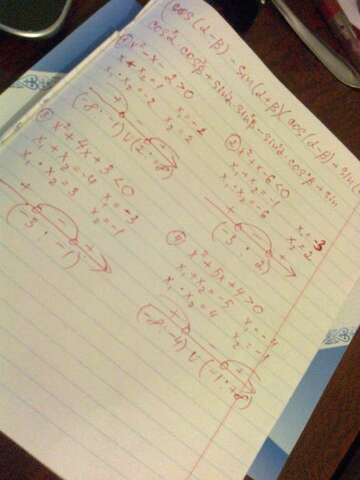 (cos(α-β) - sin(α+β)(cos(α-β) + sin
cos²α cos²β - sin²α sin²β - sin²α cos²β + sin
① x² - x - 2 > 0
x₁ · x₂ = -2
x₂ = 2
(-∞; -1) ∪ (2; ∞)
② x² + x - 6 < 0
x₁ + x₂ = -1
x₁ · x₂ = -6
x₁ = -3
x₂ = 2
(-3; 2)
③ x² + 4x + 3 < 0
x₁ + x₂ = -4
x₁ · x₂ = 3
x₁ = -3
x₂ = -1
(-3; -1)
④ x² + 5x + 4 > 0
x₁ + x₂ = -5
x₁ · x₂ = 4
x₁ = -4
x₂ = -1
(-∞; -4) ∪ (-1; +∞)